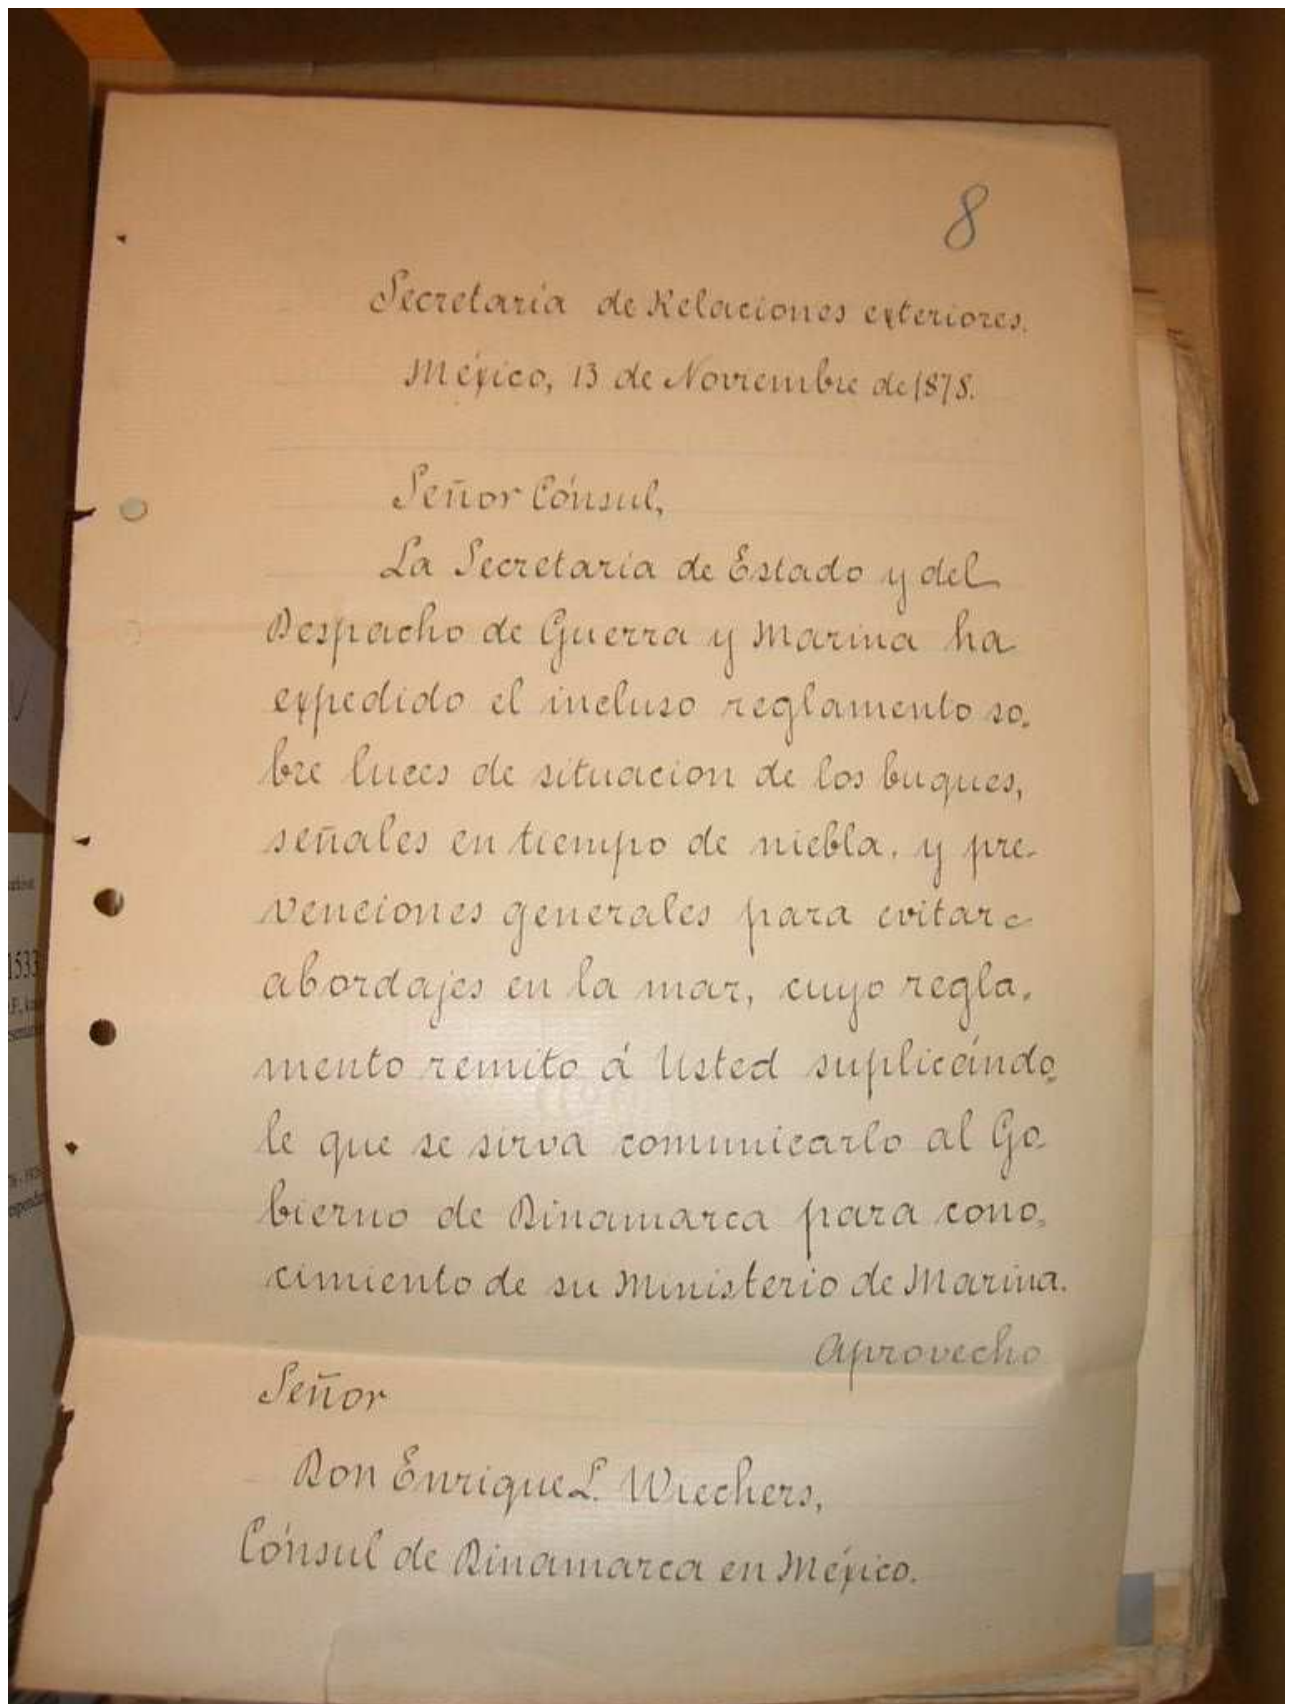 8
Secretaría de Relaciones exteriores.
México, 13 de Noviembre de 1878.
Señor Cónsul,
La Secretaría de Estado y del
Despacho de Guerra y Marina ha
expedido el incluso reglamento so-
bre luces de situacion de los buques,
señales en tiempo de niebla, y pre-
venciones generales para evitar
abordajes en la mar, cuyo regla-
mento remito á Usted suplicándo-
le que se sirva comunicarlo al Go-
bierno de Dinamarca para cono-
cimiento de su Ministerio de Marina.
Aprovecho
Señor
Don Enrique L. Wiechers,
Cónsul de Dinamarca en México.
1533